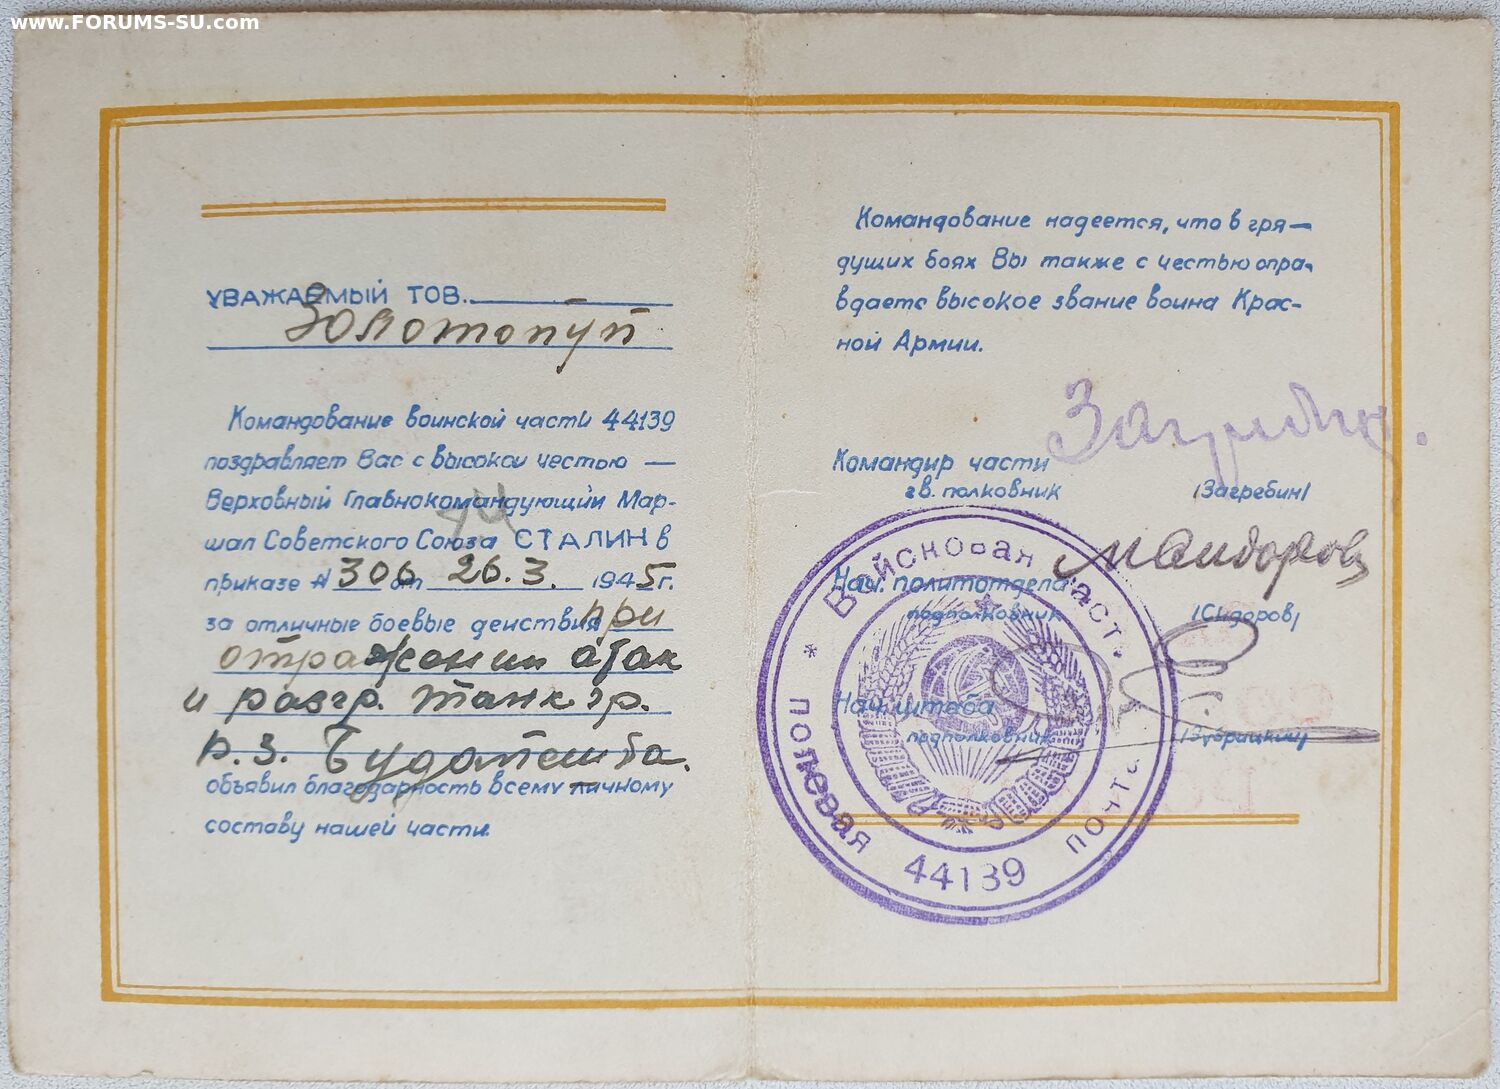 www.FORUMS-SU.com
УВАЖАЕМЫЙ ТОВ.
Золотопуп
Командование воинской части 44139
поздравляет Вас с высокой честью —
Верховный Главнокомандующий Мар-
шал Советского Союза СТАЛИН в
приказе № 306 от 26.3. 1945 г.
за отличные боевые действия при
отражении атак
и разгр. танк. гр.
р-з. Будапешта.
объявил благодарность всему личному
составу нашей части.
Командование надеется, что в гря—
дущих боях Вы также с честью опра-
вдаете высокое звание воина Крас-
ной Армии.
Командир части
гв. полковник /Загребин/
Нач. политотдела
подполковник /Сидоров/
Нач. штаба
подполковник /Зубрицкий/
Войсковая часть
* полевая почта
44139